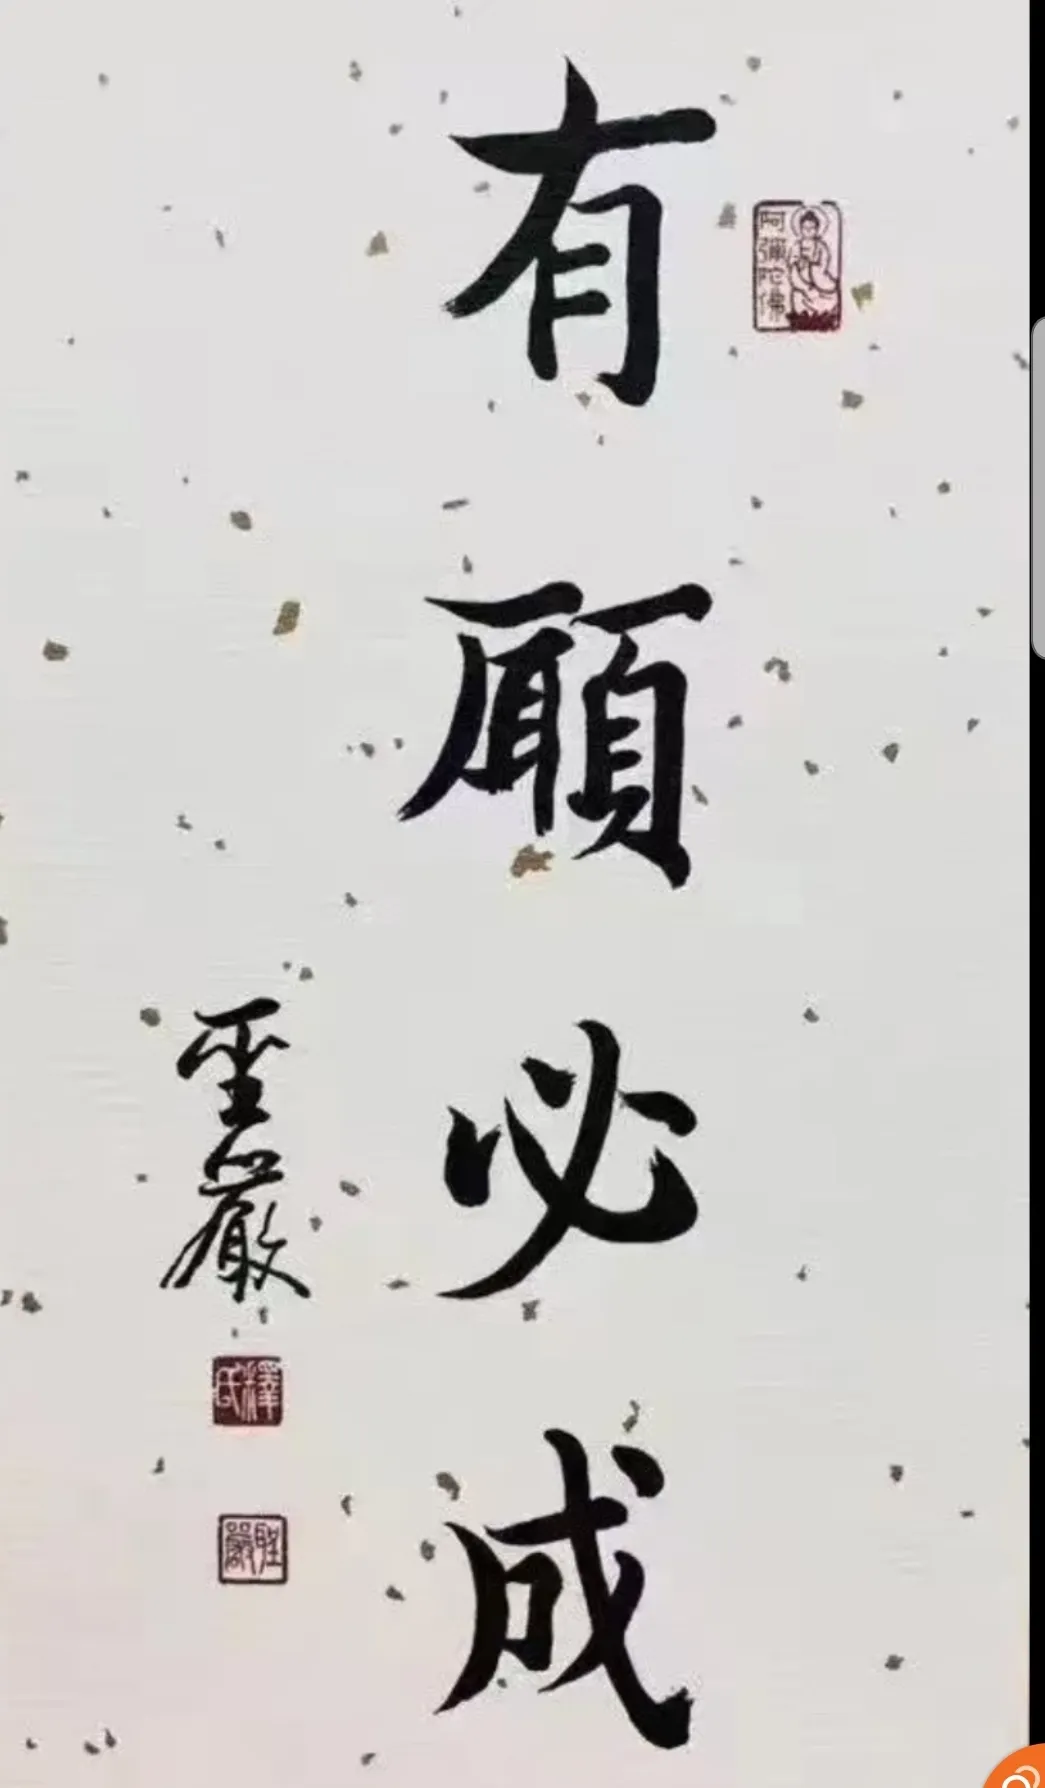 阿彌陀佛
有願必成
聖嚴
釋氏
聖嚴